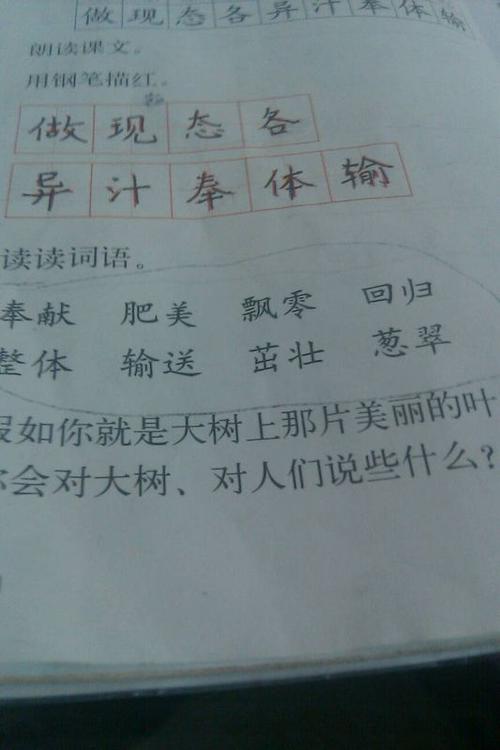 做现态各异汁奉体输
朗读课文。
用钢笔描红。
做现态各
异汁奉体输
读读词语。
奉献 肥美 飘零 回归
整体 输送 茁壮 葱翠
假如你就是大树上那片美丽的叶
你会对大树、对人们说些什么?